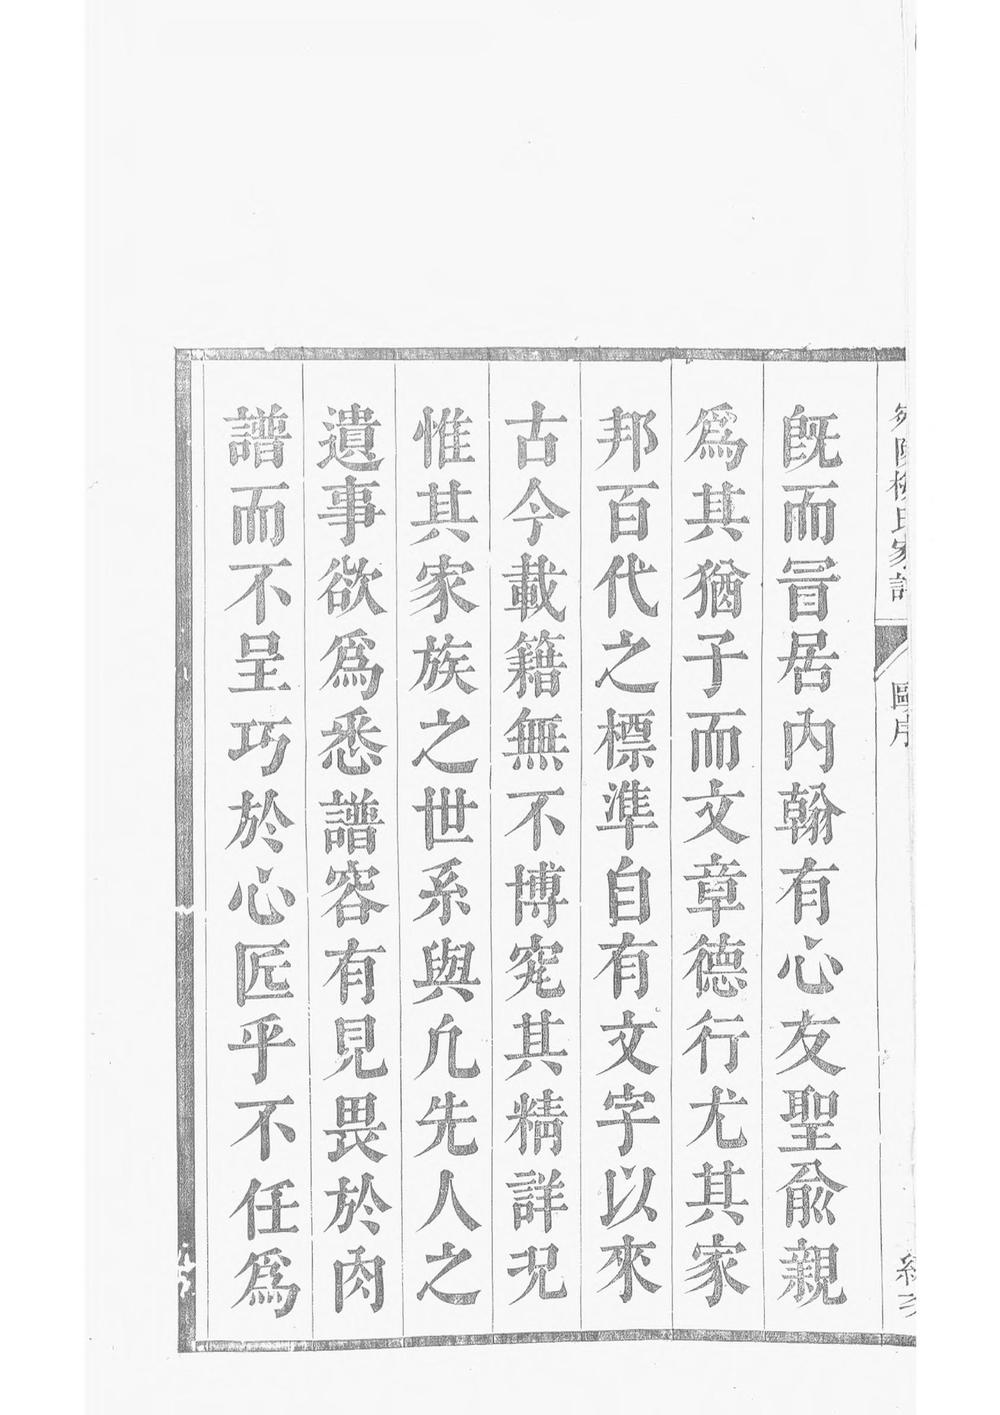 宛陵梅氏家譜
歐序
旣而冐居内翰有心友聖兪親
爲其猶子而文章德行尤其家
邦百代之標準自有文字以來
古今載籍無不博究其精詳况
惟其家族之世系與凢先人之
遺事欲爲悉譜容有見畏於肉
譜而不呈巧於心匠乎不任爲